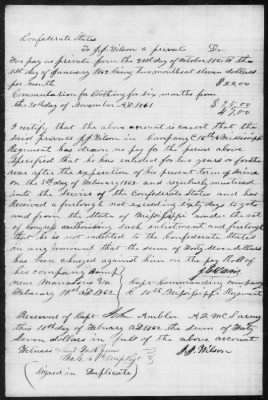 Confederate States
To J.J. Wilson a private Dr
To pay as private from the 31st day of October 1861 to the
1st day of January 1862 being two months at eleven dollars
per month $22.00
Commutation for Clothing for six months from
the 30th day of November A.D. 1861 $25.00
47.00
I certify that the above account is correct that the
said private J.J. Wilson in Company C 15th Mississippi
Regiment has drawn no pay for the period above
specified that he has enlisted for two years or for the
war after the expiration of his present term of service
on the day of February 1862 and regularly mustered
into the service of the Confederate States and has
received a furlough not exceeding sixty days to go to
and from the State of Mississippi under the act
of Congress authorising such enlistment and furlough
that he is not indebted to the Confederate States
in any amount that the sum of Forty seven dollars
has been charged against him on the pay Roll of
his company Camp
near Va Capt Commanding company
February 10th A.D. 1862 C 15th Mississippi Regiment
Received of Capt Ambler A.Q.M. C.S. army
this 10th day of February A.D. 1862 the sum of Forty
Seven dollars in full of the above account
Witness
J.J. Wilson
(Signed in Duplicate)